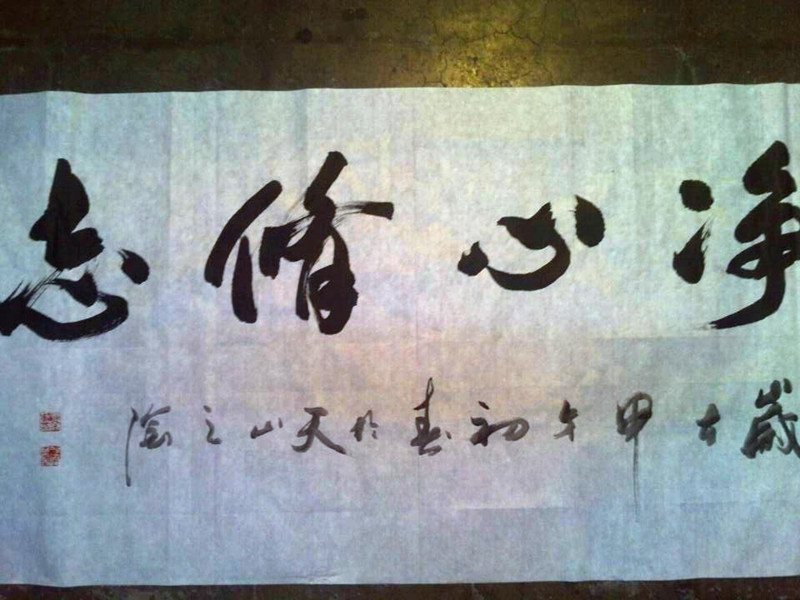 净心修志
歲在甲午初春於天山之陰